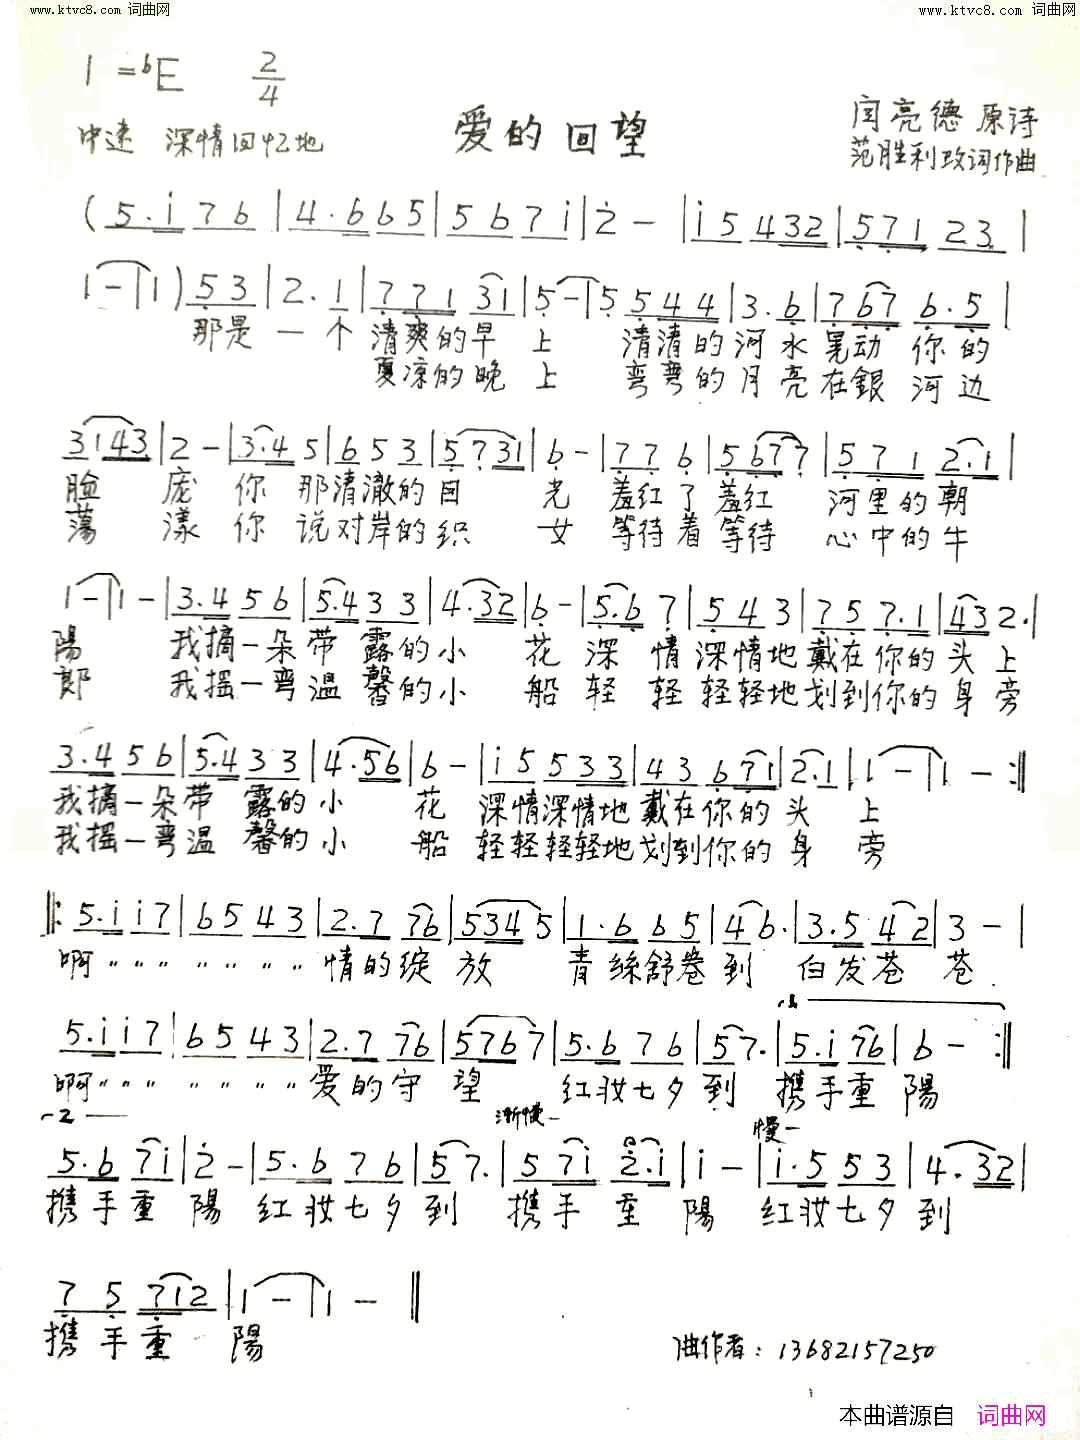 www.ktvc8.com 词曲网 www.ktvc8.com 词曲网
1=♭E 2/4
中速 深情回忆地 爱的回望 闫亮德 原诗
范胜利改词作曲
(5.i 7 6 | 4.6 6 5 | 5 6 7 i | 2 - | i 5 4 3 2 | 5 7 1 2 3 |
1 - | 1 ) 5 3 | 2. 1 | 7 7 1 3 1 | 5 - | 5 5 4 4 | 3. 6 | 7 6 7 6. 5 |
那是一个清爽的早上 清清的河水晃动你的
夏凉的晚上 弯弯的月亮在銀河边
3 1 4 3 | 2 - | 3.4 5 | 6 5 3 | 5 7 3 1 | 6 - | 7 7 6 | 5 6 7 7 | 5 7 1 2.1 |
脸庞你那清澈的目光羞红了羞红河里的朝
荡漾你说对岸的织女等待着等待心中的牛
1 - | 1 - | 3.4 5 6 | 5.4 3 3 | 4.3 2 | 6 - | 5.6 7 | 5 4 3 | 7 5 7.1 | 4 3 2. |
陽 我摘一朵带露的小花深情深情地戴在你的头上
郎 我摇一弯温馨的小船轻轻轻轻地划到你的身旁
3.4 5 6 | 5.4 3 3 | 4.5 6 | 6 - | i 5 5 3 3 | 4 3 6 7 1 | 2.1 | 1 - | 1 - :||
我摘一朵带露的小花深情深情地戴在你的头上
我摇一弯温馨的小船轻轻轻轻地划到你的身旁
||: 5.i i 7 | 6 5 4 3 | 2.7 7 6 | 5 3 4 5 | 1.6 6 5 | 4 6. | 3.5 4 2 | 3 - |
啊 〃 〃 〃 〃 〃 〃 〃 情的绽放 青絲舒卷到 白发苍苍
1.
5.i i 7 | 6 5 4 3 | 2.7 7 6 | 5 7 6 7 | 5.6 7 6 | 5 7. | 5.i 7 6 | 6 - :||
啊 〃 〃 〃 〃 〃 〃 〃 爱的守望 红妆七夕到 携手重陽
2. 渐慢 慢
5.6 7 i | 2 - | 5.6 7 6 | 5 7. | 5 7 i 2.i | i - | i.5 5 3 | 4.3 2 |
携手重陽 红妆七夕到 携手重陽 红妆七夕到
7 5 7 1 2 | 1 - | 1 - ||
携手重陽
曲作者：13682157250
本曲谱源自 词曲网